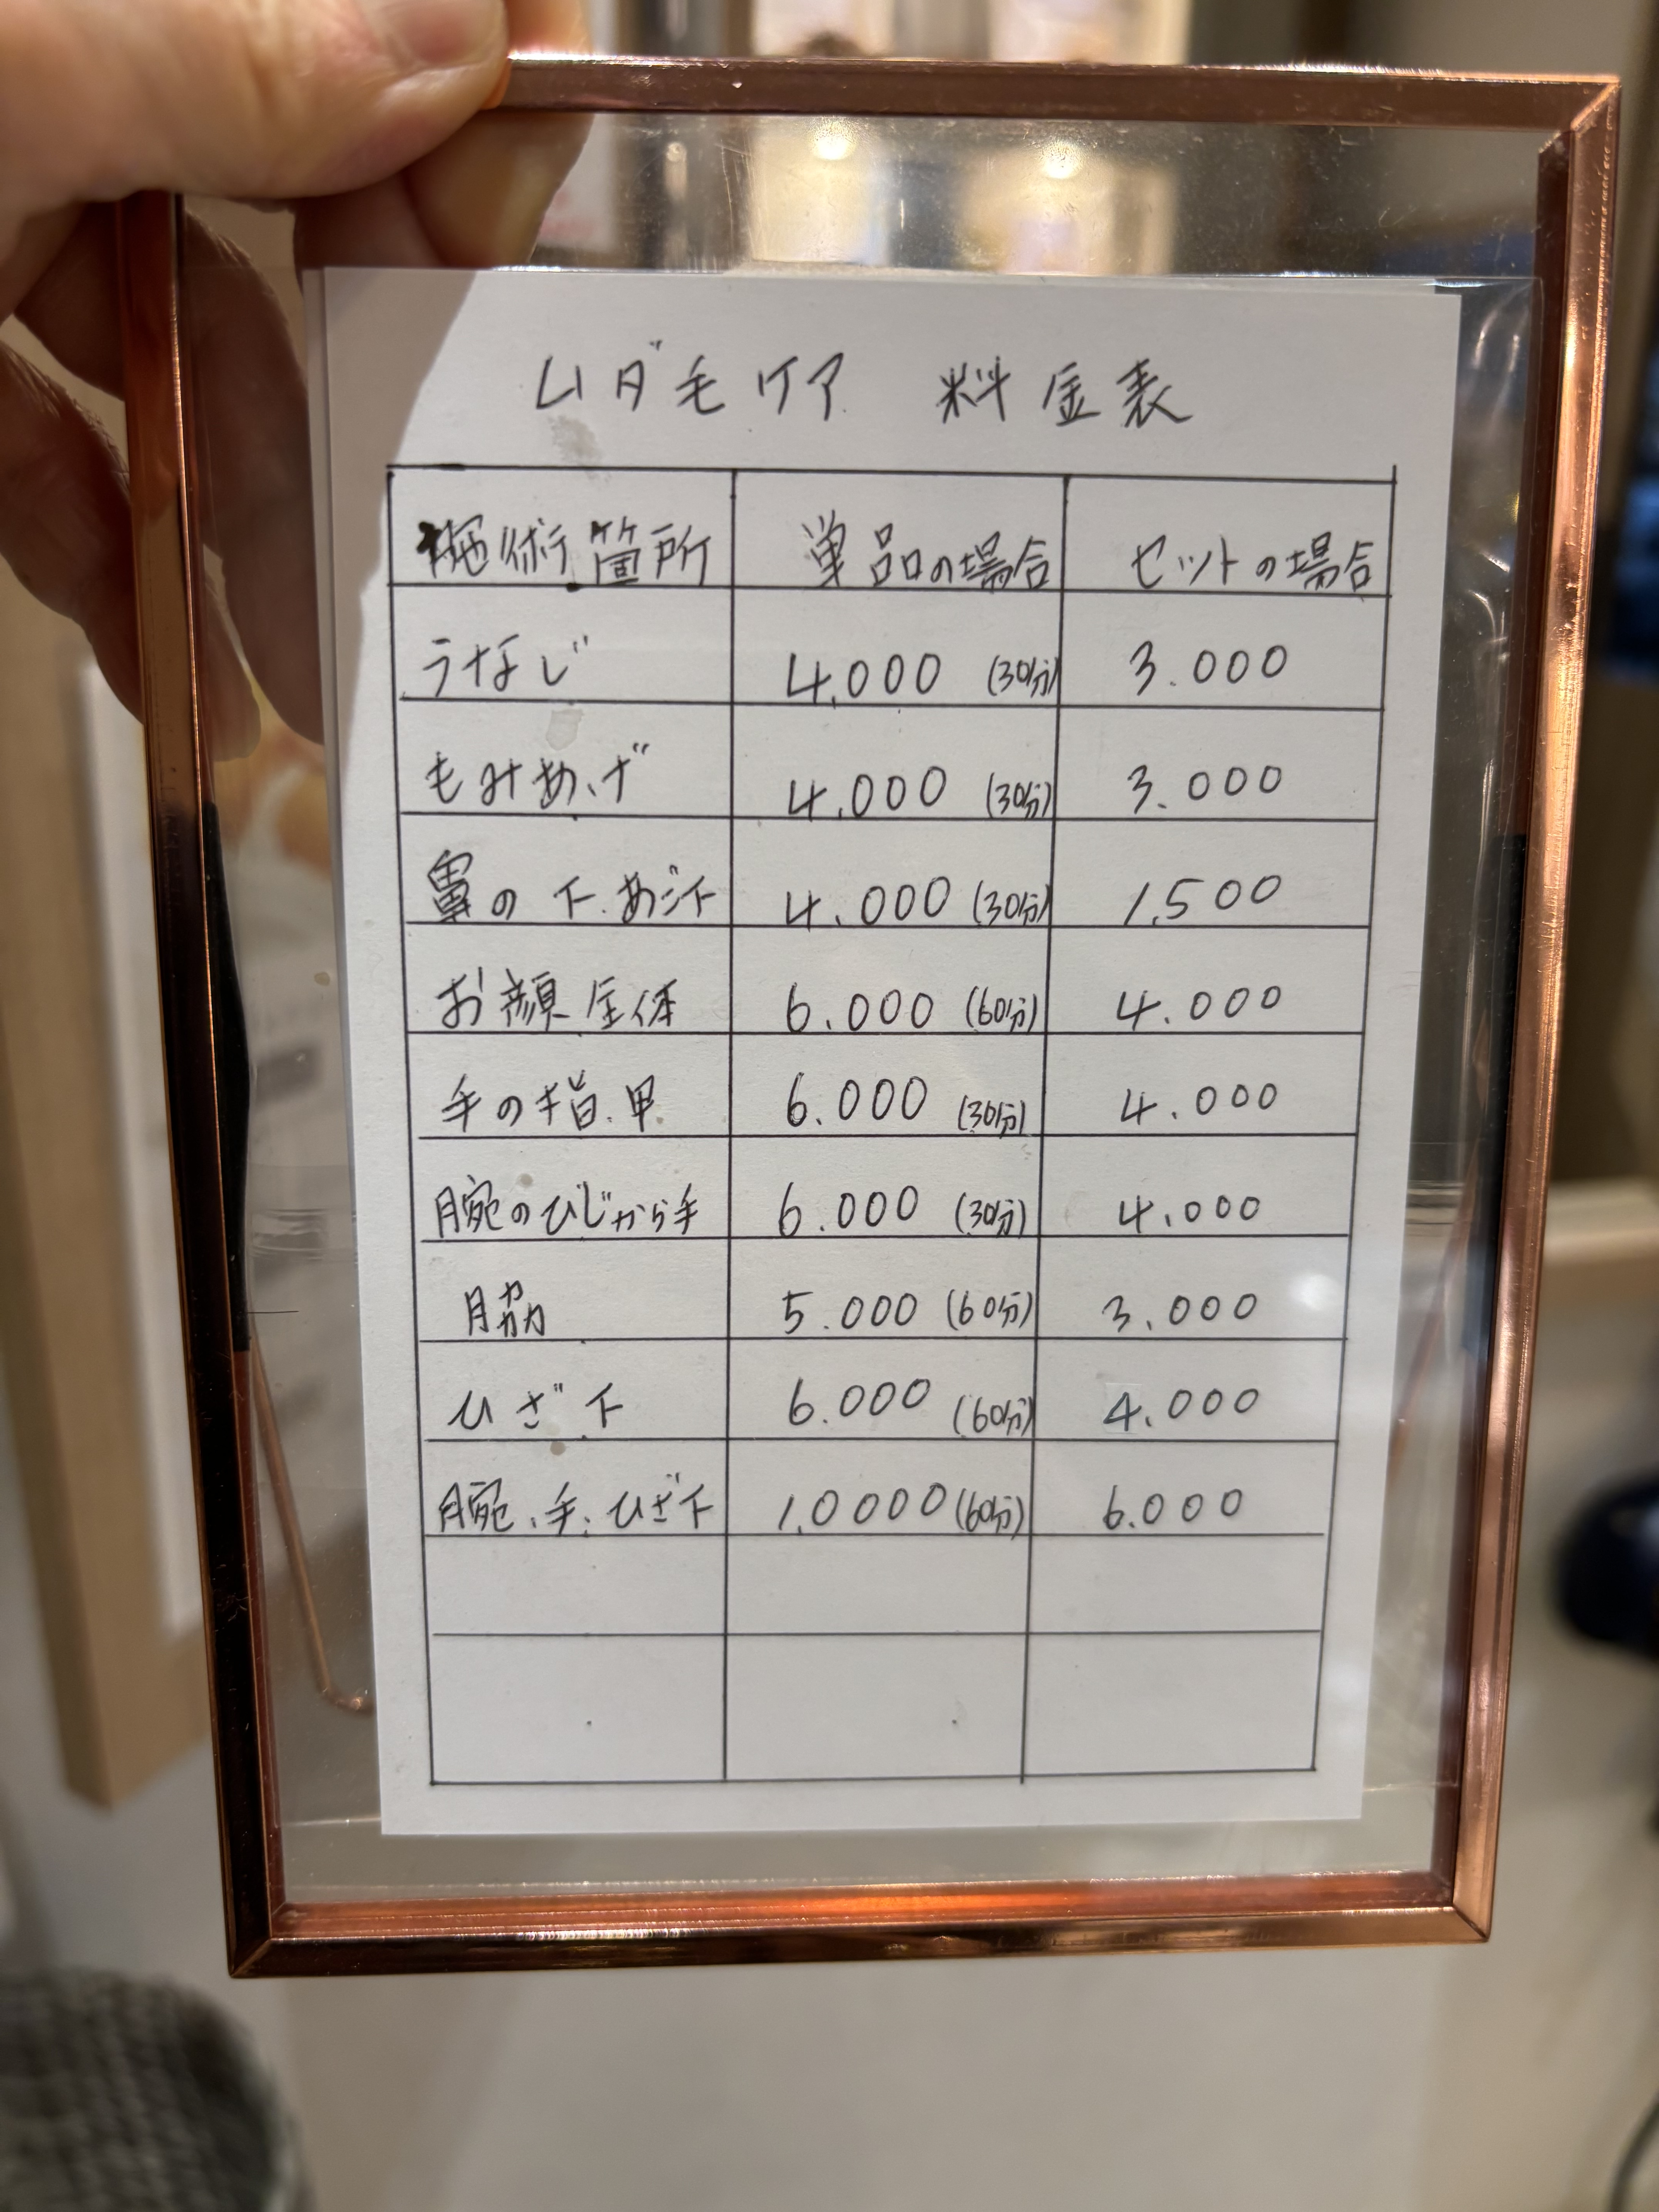 ムダ毛ケア 料金表
施術箇所 単品の場合 セットの場合
うなじ 4,000 (30分) 3.000
もみあげ 4,000 (30分) 3.000
鼻の下.あご下 4.000 (30分) 1,500
お顔全体 6.000 (60分) 4.000
手の指.甲 6.000 (30分) 4.000
腕のひじから手 6.000 (30分) 4.000
脇 5.000 (60分) 3.000
ひざ下 6.000 (60分) 4.000
腕、手、ひざ下 1,0000 (60分) 6.000